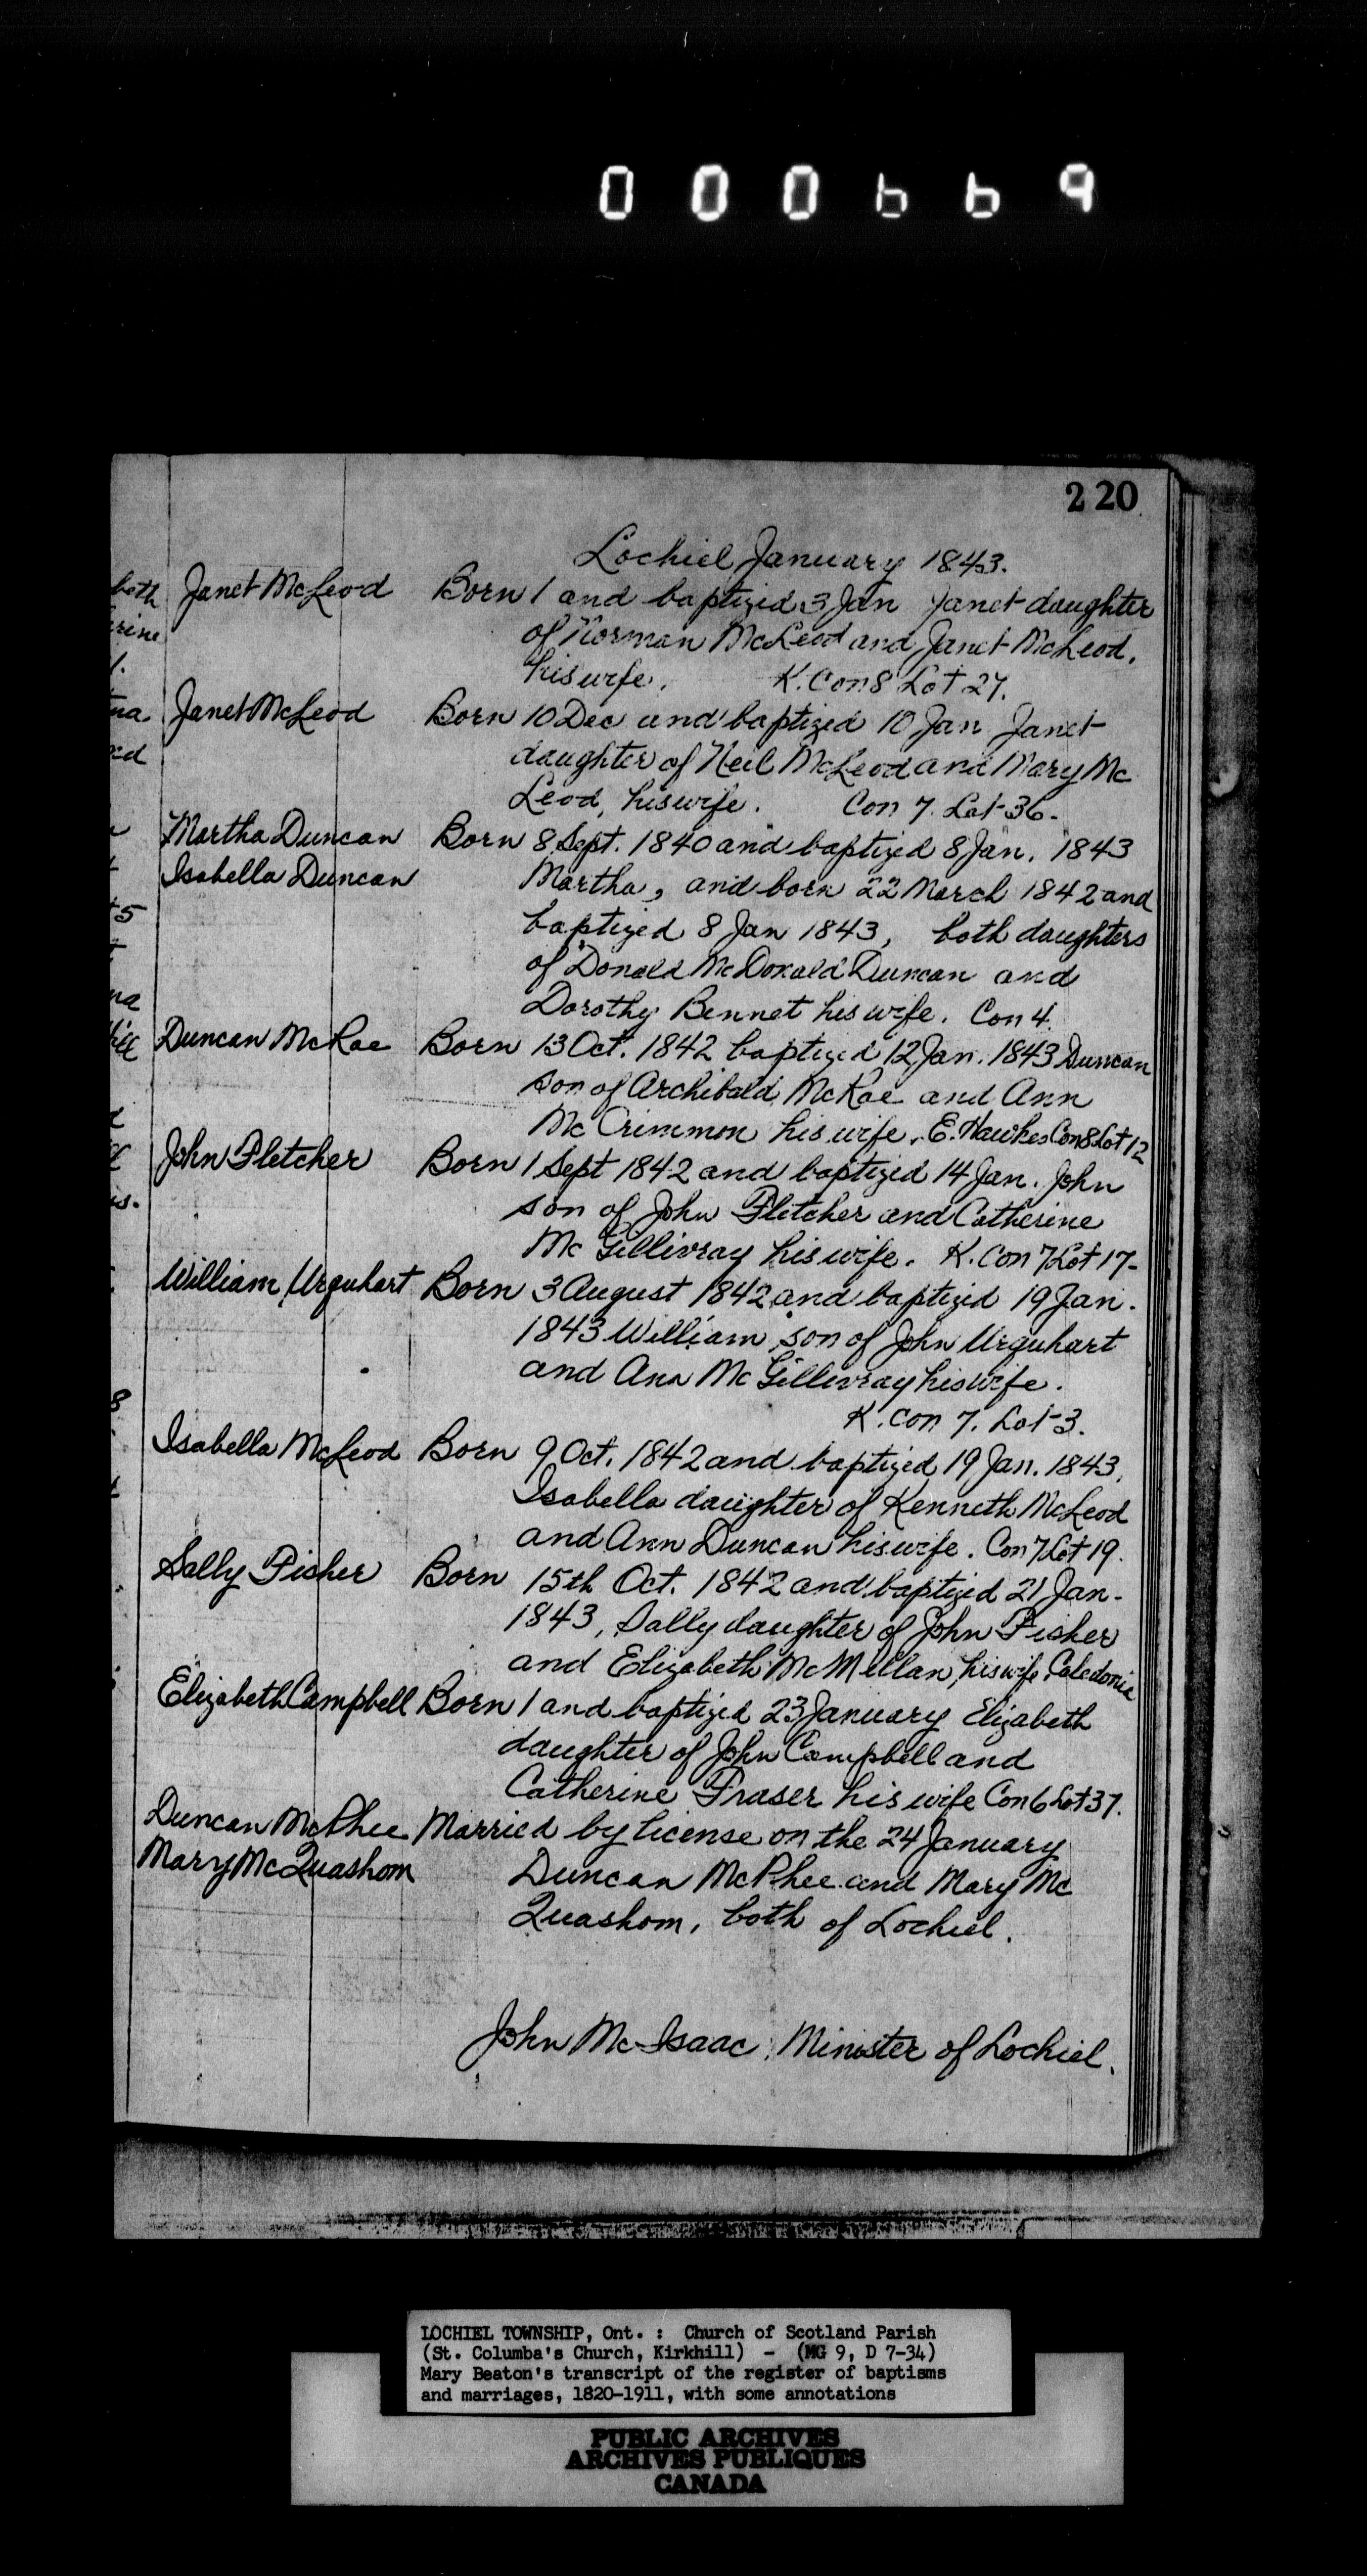 000669
220
Lochiel January 1843.
Janet McLeod Born 1 and baptized 3 Jan Janet daughter
of Norman McLeod and Janet McLeod,
his wife. K. Con 8 Lot 27.
Janet McLeod Born 10 Dec and baptized 10 Jan Janet
daughter of Neil McLeod and Mary Mc
Leod, his wife. Con 7. Lot 36-
Martha Duncan Born 8 Sept. 1840 and baptized 8 Jan. 1843
Isabella Duncan Martha, and born 22 March 1842 and
baptized 8 Jan 1843, both daughters
of Donald McDonald Duncan and
Dorothy Bennet his wife. Con 4.
Duncan McRae Born 13 Oct. 1842 baptized 12 Jan. 1843 Duncan
son of Archibald McRae and Ann
McCrimmon his wife. E. Hawkes Con 8 Lot 12
John Fletcher Born 1 Sept 1842 and baptized 14 Jan. John
son of John Fletcher and Catherine
McGillivray his wife. K. Con 7 Lot 17-
William Urquhart Born 3 August 1842 and baptized 19 Jan.
1843 William son of John Urquhart
and Ann McGillivray his wife.
K. Con 7. Lot 3.
Isabella McLeod Born 9 Oct. 1842 and baptized 19 Jan. 1843,
Isabella daughter of Kenneth McLeod
and Ann Duncan his wife. Con 7 Lot 19.
Sally Fisher Born 15th Oct. 1842 and baptized 21 Jan-
1843, Sally daughter of John Fisher
and Elizabeth McMillan, his wife, Caledonia
Elizabeth Campbell Born 1 and baptized 23 January Elizabeth
daughter of John Campbell and
Catherine Fraser his wife Con 6 Lot 37.
Duncan McPhee Married by license on the 24 January
Mary McQuashom Duncan McPhee and Mary Mc
Quashom, both of Lochiel.
John McIsaac, Minister of Lochiel.
LOCHIEL TOWNSHIP, Ont. : Church of Scotland Parish
(St. Columba's Church, Kirkhill) - (MG 9, D 7-34)
Mary Beaton's transcript of the register of baptisms
and marriages, 1820-1911, with some annotations
PUBLIC ARCHIVES
ARCHIVES PUBLIQUES
CANADA